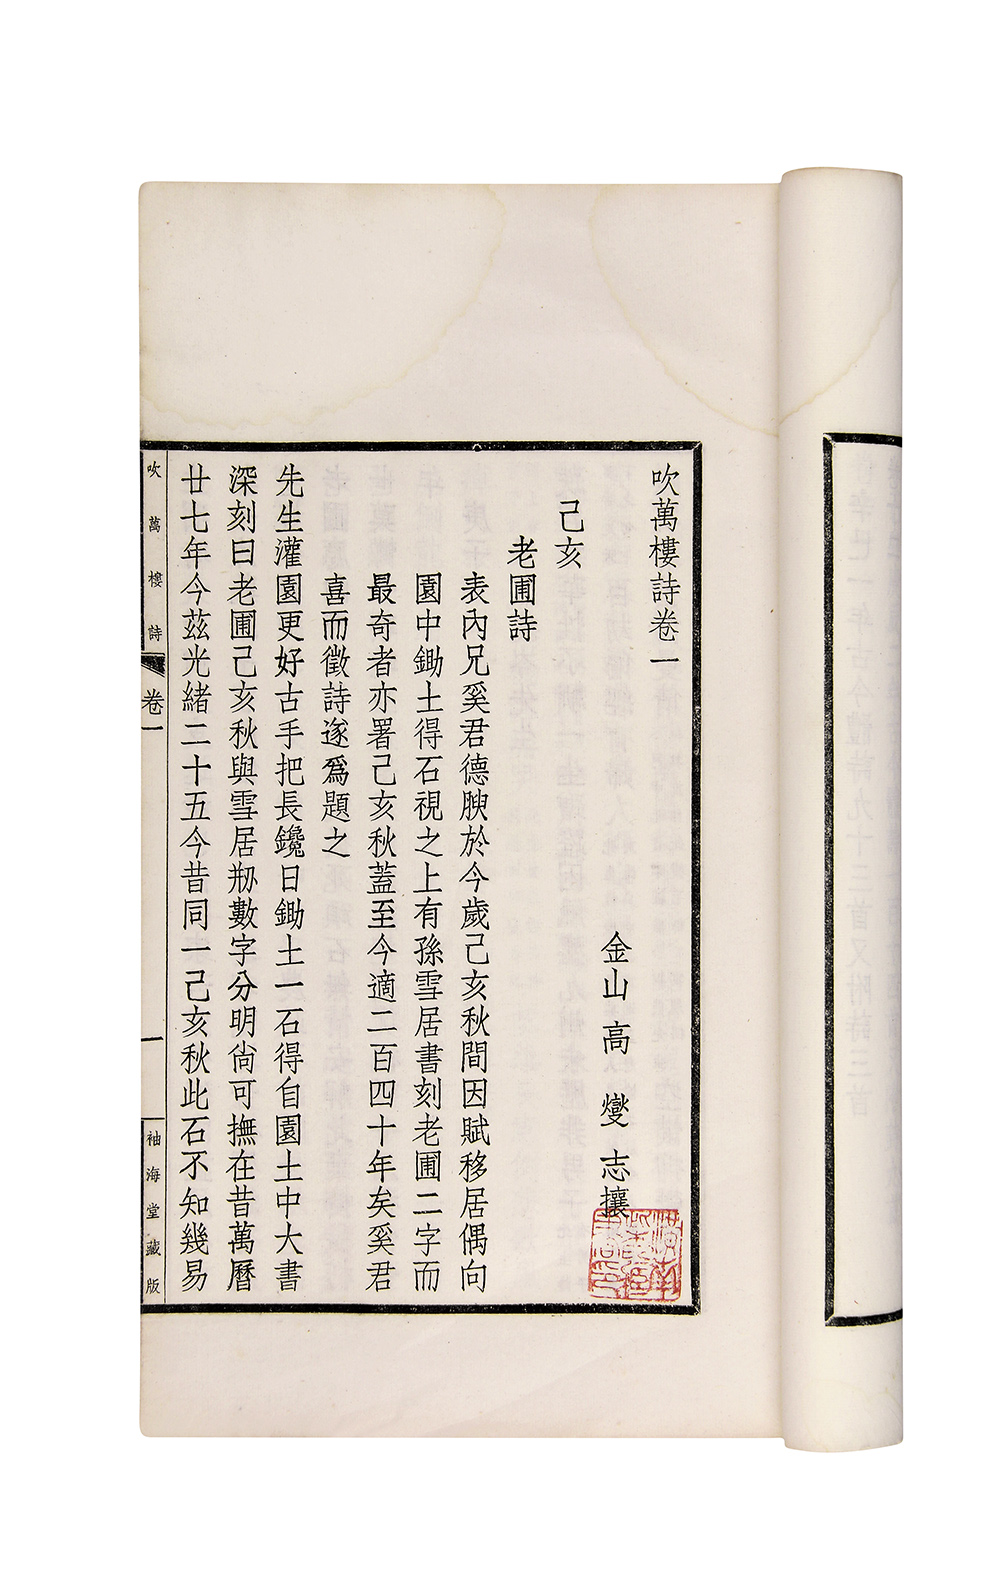 吹萬樓詩卷一
金山 高 燮 志攘
己亥
老圃詩
表內兄奚君德腴於今歲己亥秋間因賦移居偶向
園中鋤土得石視之上有孫雪居書刻老圃二字而
最奇者亦署己亥秋蓋至今適二百四十年矣奚君
喜而徵詩遂爲題之
先生灌園更好古手把長鑱日鋤土一石得自園土中大書
深刻曰老圃己亥秋與雪居刱數字分明尙可撫在昔萬曆
廿七年今茲光緒二十五今昔同一己亥秋此石不知幾易
吹萬樓詩
卷一
一
袖海堂藏版